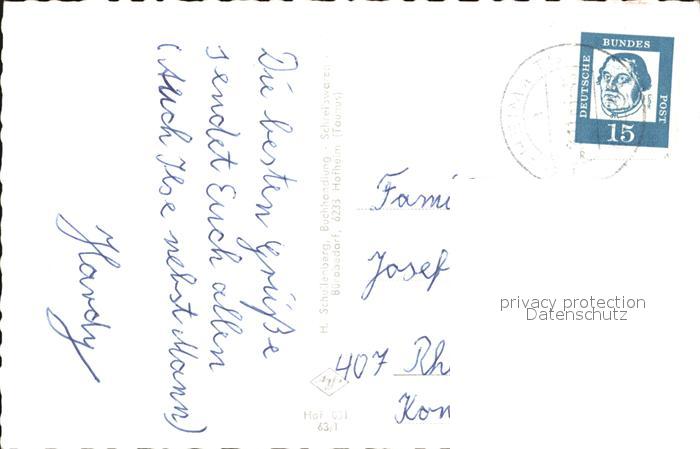 Die besten Grüße
sendet Euch allen
(Auch Ilse nebst Mann)
Hardy
H. Schellenberg, Buchhandlung - Schreibwaren
Bürobedarf, 6233 Hofheim (Taunus)
Hof 031
63/1
Fami
Josef
407 Rh
Kon
DEUTSCHE
BUNDES
POST
15
privacy protection
Datenschutz